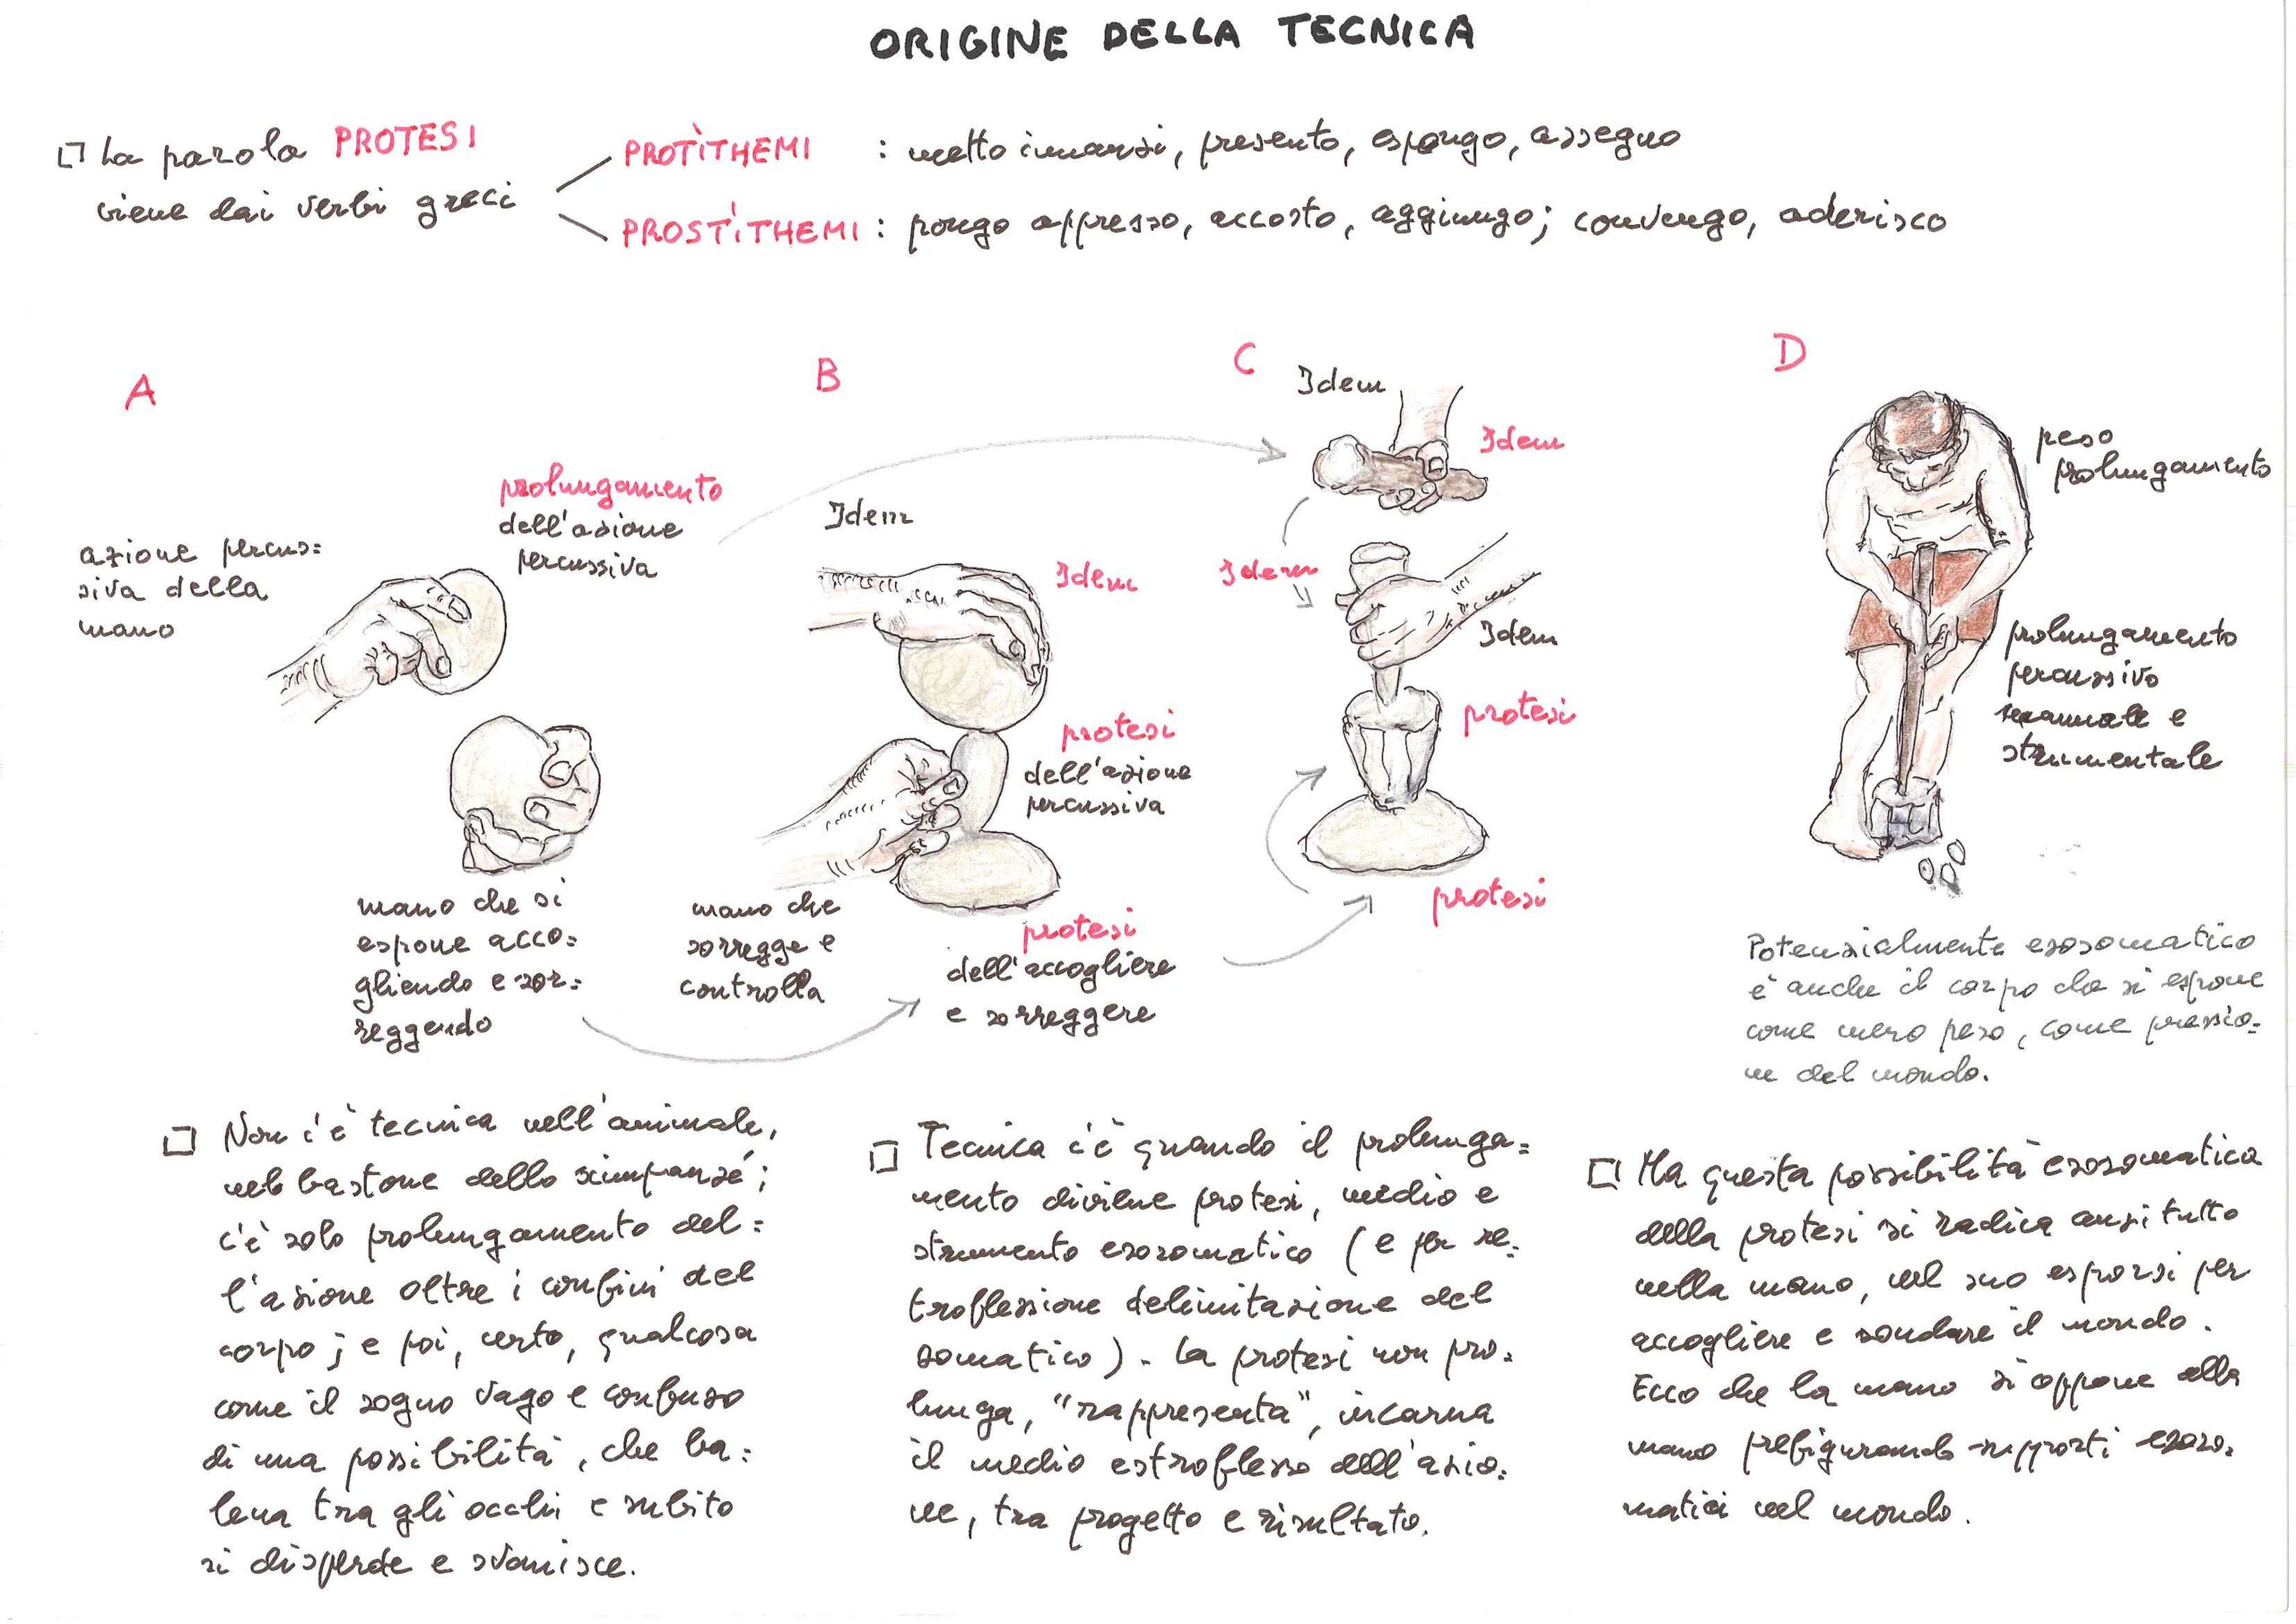 ORIGINE DELLA TECNICA
La parola PROTESI
viene dai verbi greci
PROTÌTHEMI : metto innanzi, presento, espongo, assegno
PROSTÌTHEMI : pongo appresso, accosto, aggiungo; convengo, aderisco
A
azione percus=
siva della
mano
prolungamento
dell'azione
percussiva
mano che si
espone acco=
gliendo e sor=
reggendo
B
Idem
Idem
protesi
dell'azione
percussiva
mano che
sorregge e
controlla
protesi
dell'accogliere
e sorreggere
C
Idem
Idem
Idem
Idem
protesi
protesi
D
peso
prolungamento
prolungamento
percussivo
e
strumentale
Potenzialmente esosomatico
è anche il corpo che si espone
come mero peso, come pressio=
ne del mondo.
Non c'è tecnica nell'animale,
nel bastone dello scimpanzé;
c'è solo prolungamento del=
l'azione oltre i confini del
corpo; e poi, certo, qualcosa
come il sogno vago e confuso
di una possibilità, che ba=
lena tra gli occhi e subito
si disperde e svanisce.
Tecnica c'è quando il prolunga=
mento diviene protesi, medio e
strumento esosomatico (e per re=
troflessione delimitazione del
somatico). La protesi non pro=
lunga, "rappresenta", incarna
il medio estroflesso dell'azio=
ne, tra progetto e risultato.
Ma questa possibilità esosomatica
della protesi si radica anzitutto
nella mano, nel suo esporsi per
accogliere e sondare il mondo.
Ecco che la mano si oppone alla
mano prefigurando supporti esoso=
matici nel mondo.